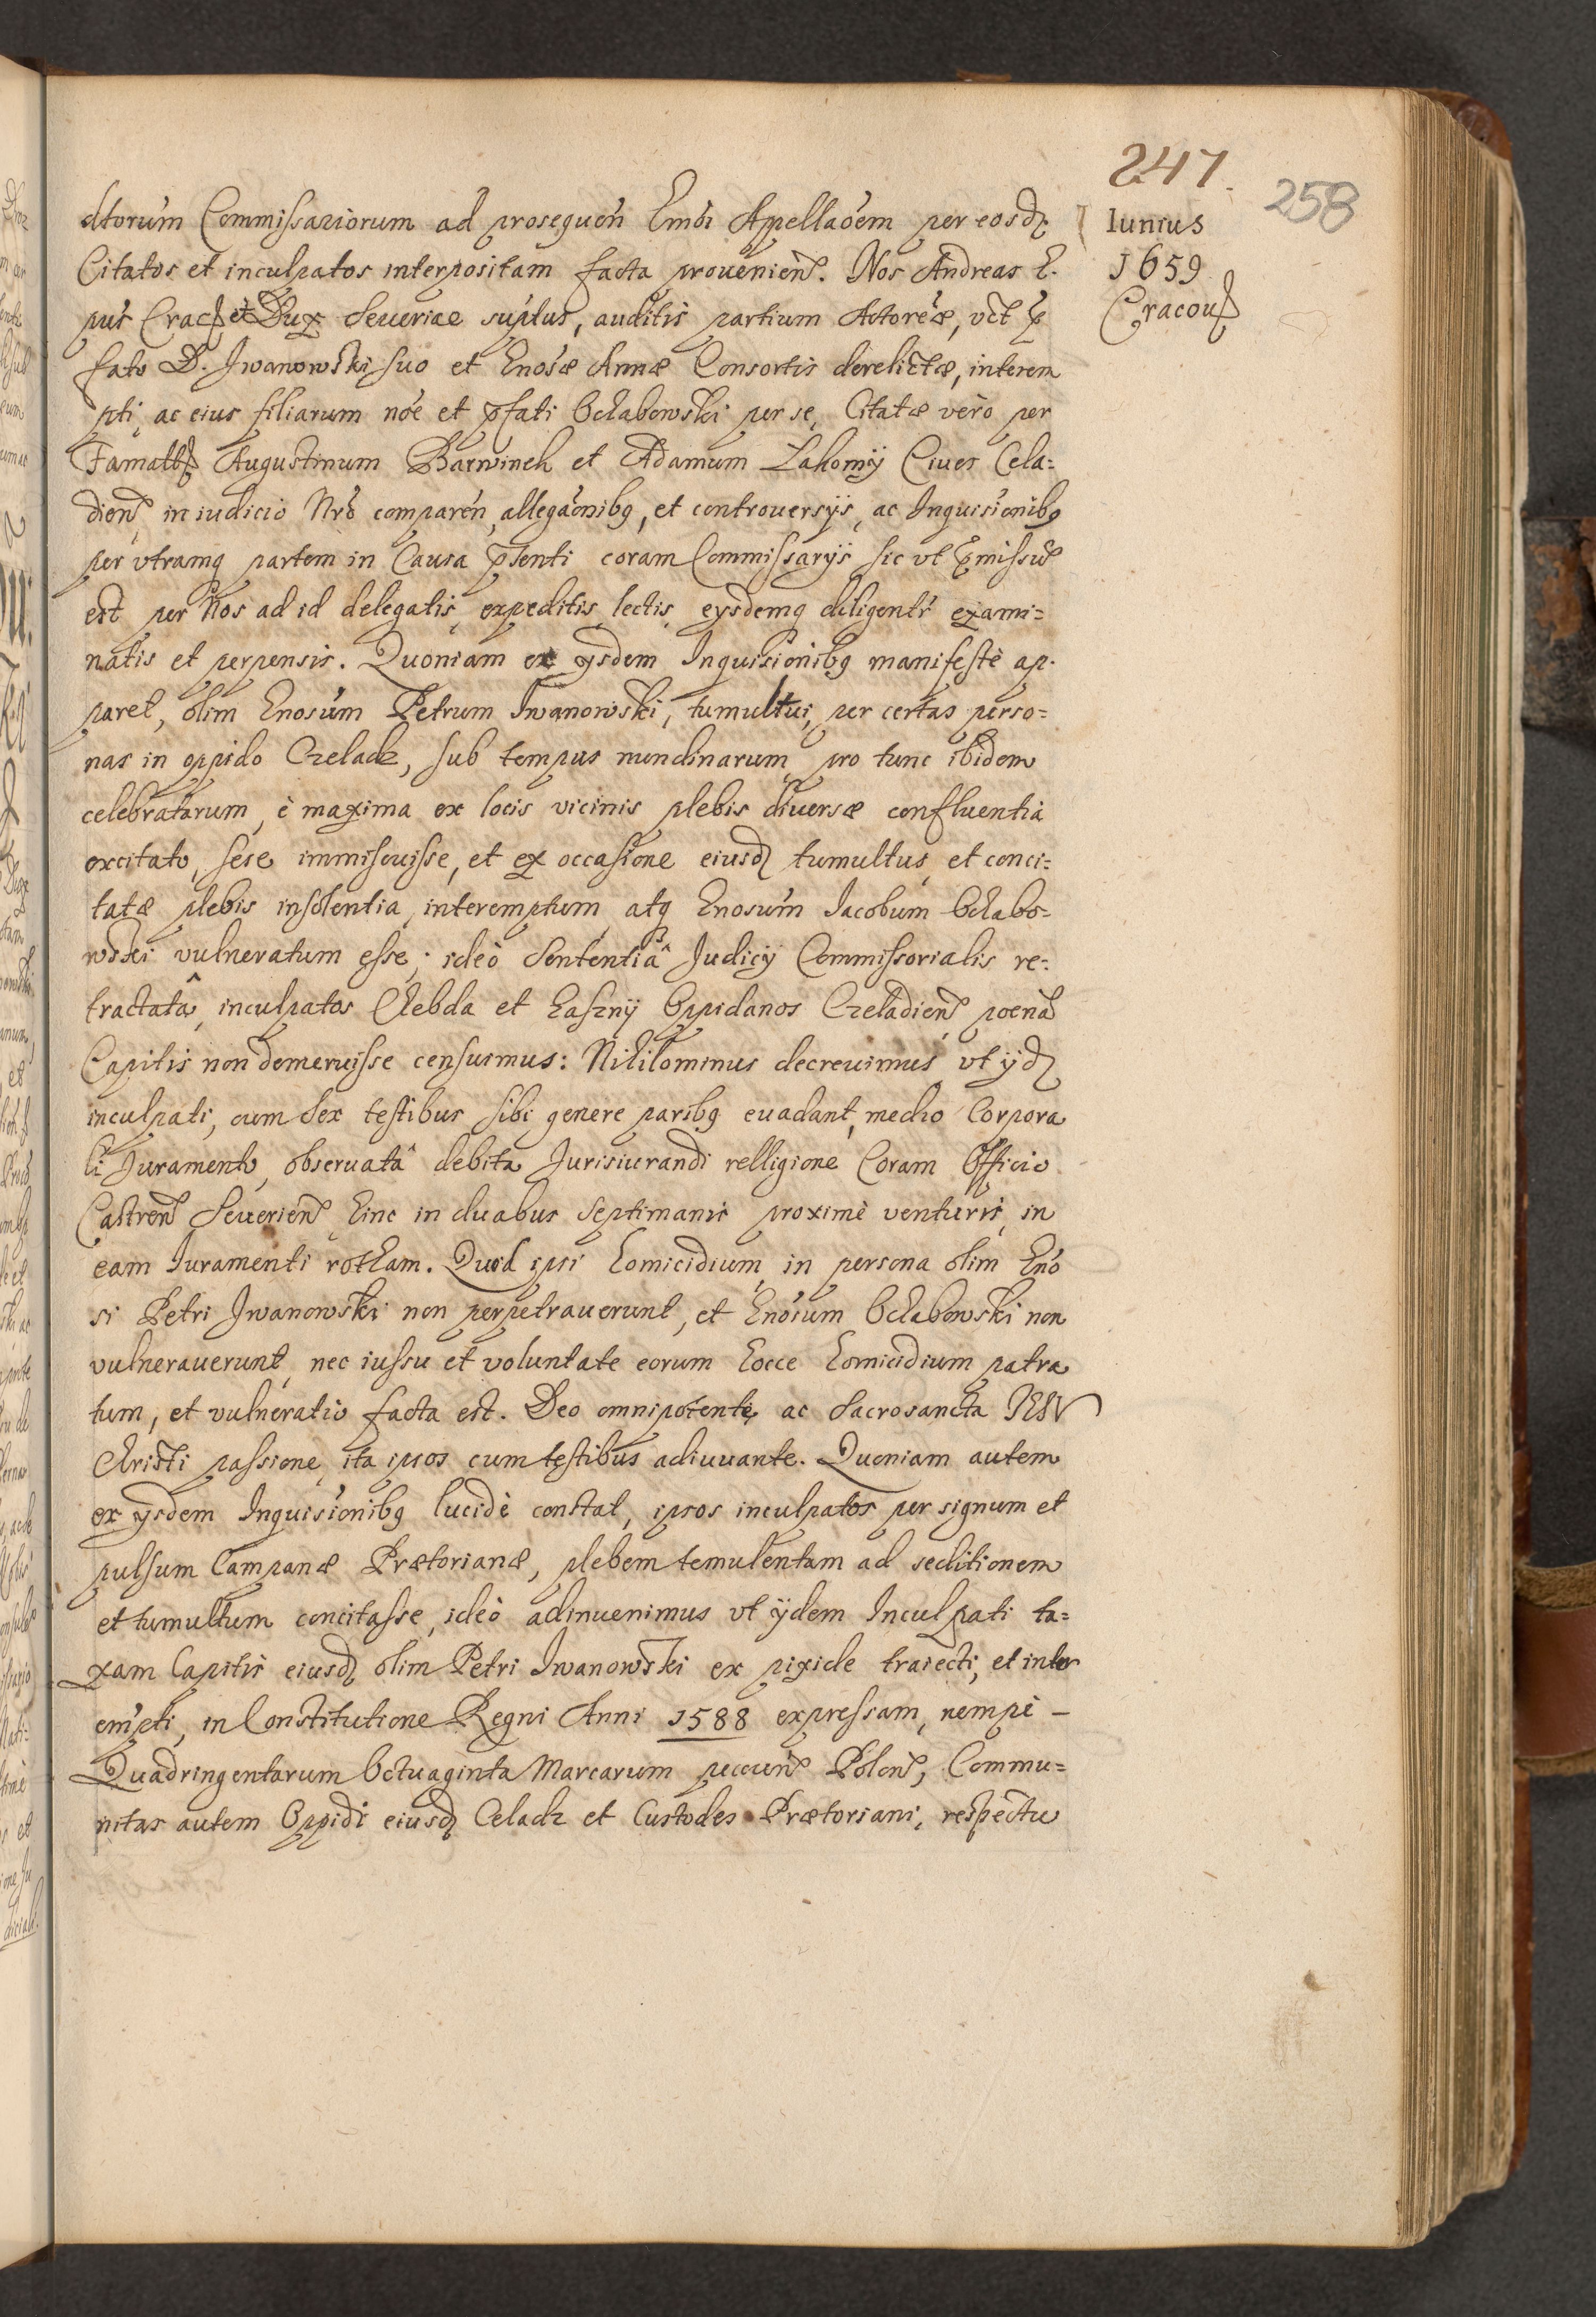 247.
258
Iunius
1659
Cracou
dtorum Commissariorum ad prosequen Emõi Apellaoem per eosd
Citatos et inculpatos interpositam facta prouenien. Nos Andreas E.
pus Crac et Dux Seueriae suplus, auditis partium Actoreæ, vct
fato D. Iwanowski suo et Enosæ Annæ Consortis derelictæ, interem
pti, ac eius filiarum nõe et pfati Ochabowski per se, Citatæ vero per
Famatt Augustinum Barwinek et Adamum Lakomÿ Ciues Cela=
dien in iudicio Nrõ comparen, allegaonibq, et controuersÿs, ac Inquisionibq
per vtramq partem in Causa psenti coram Commissarÿs sic vt pmissu
est per Nos ad id delegatis, expeditis, lectis, eysdemq diligentr exami=
natis et perpensis. Quoniam ex ÿsdem Inquisionibq manifestè ap.
paret, olim Enosum Petrum Iwanowski, tumultui, per certas perso=
nas in oppido Czeladz, sub tempus nundinarum pro tunc ibidem
celebratarum, è maxima ex locis vicinis plebis diuersæ confluentia
excitato, sese immiscuisse, et ex occasione eiusd tumultus, et conci=
tatæ plebis insolentia, interemptum, atq Enosum Iacobum Ochabo=
wski vulneratum esse; ideò Sententiâ Judicÿ Commissorialis re=
tractatâ, inculpatos Chebda et Łasznÿ Oppidanos Czeladien poenã
Capitis non demeruisse censuimus: Nihilominus decreuimus, vt ÿd
inculpati, cum sex testibus sibi genere paribq euadant, medio Corpora
li Iuramento, obseruatâ debita Iurisiurandi relligione Coram Officio
Castren Seuerien hinc in duabus Septimanis proximè venturis, in
eam Iuramenti rotham. Quod ipsi homicidium in persona olim Eno
si Petri Iwanowski non perpetrauerunt, et Enosum Ochabowski non
vulnerauerunt, nec iussu et voluntate eorum hocce homicidium patra
tum, et vulneratio facta est. Deo omnipotente, ac Sacrosancta IESV
Christi passione, ita ipsos cum testibus adiuuante. Quoniam autem
ex ÿsdem Inquisionibq lucidè constat, ipsos inculpatos per signum et
pulsum Campanæ Prætorianæ, plebem temulentam ad seditionem
et tumultum concitasse, ideò adinuenimus vt ÿdem Inculpati ta=
xam Capitis eiusd olim Petri Iwanowski ex pixide traiecti, et inter
empti, in Constitutione Regni Anni 1588 expressam, nempè –
Quadringentarum Octuaginta Marcarum pecun Polon, Commu=
nitas autem Oppidi eiusd Celadz et Custodes Prætoriani, respectu